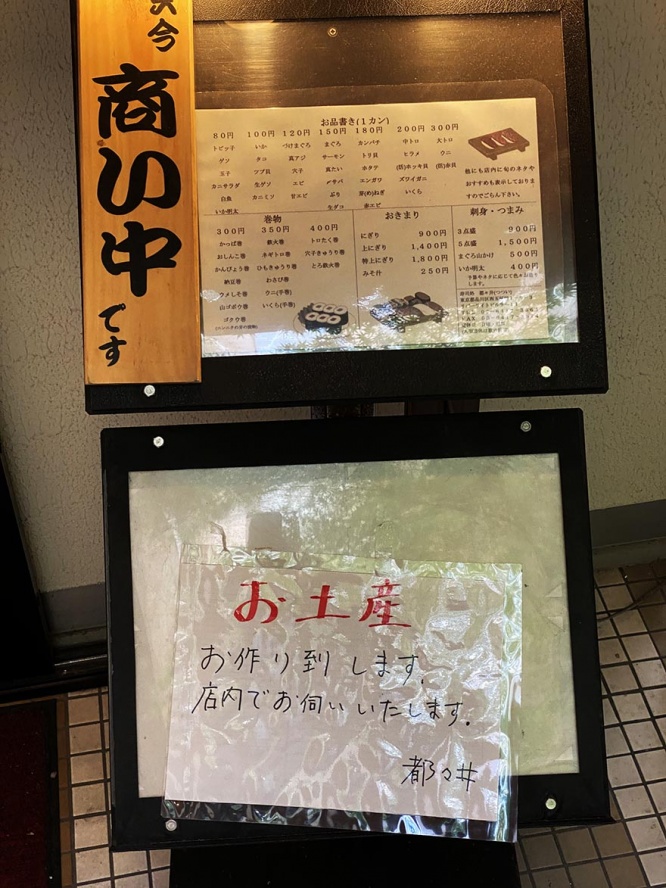 只今
商い中
です
お品書き(1カン)
80円 100円 120円 150円 180円 200円 300円
トビッ子 いか づけまぐろ まぐろ カンパチ 中トロ 大トロ
ゲソ タコ 真アジ サーモン トリ貝 ヒラメ ウニ
玉子 ツブ貝 穴子 真たい ホタテ (活)ホッキ貝 (活)赤貝
カニサラダ 生ゲソ エビ 〆サバ エンガワ ズワイガニ
白魚 カニミソ 甘エビ ぶり 芽(め)ねぎ いくら
いか明太 生ダコ 赤エビ
他にも店内に旬のネタや
おすすめも表示しておりま
すのでごらん下さい。
巻物
300円 350円 400円
かっぱ巻 鉄火巻 トロたく巻
おしんこ巻 ネギトロ巻 穴子きゅうり巻
かんぴょう巻 ひもきゅうり巻 とろ鉄火巻
納豆巻 わさび巻
ウメしそ巻 ウニ(半巻)
山ゴボウ巻 いくら(半巻)
ゴクウ巻
おきまり
にぎり 900円
上にぎり 1,400円
特上にぎり 1,800円
みそ汁 250円
刺身・つまみ
3点盛 900円
5点盛 1,500円
まぐろ山かけ 500円
いか明太 400円
お土産
お作り到します。
店内でお伺いいたします。
都々井